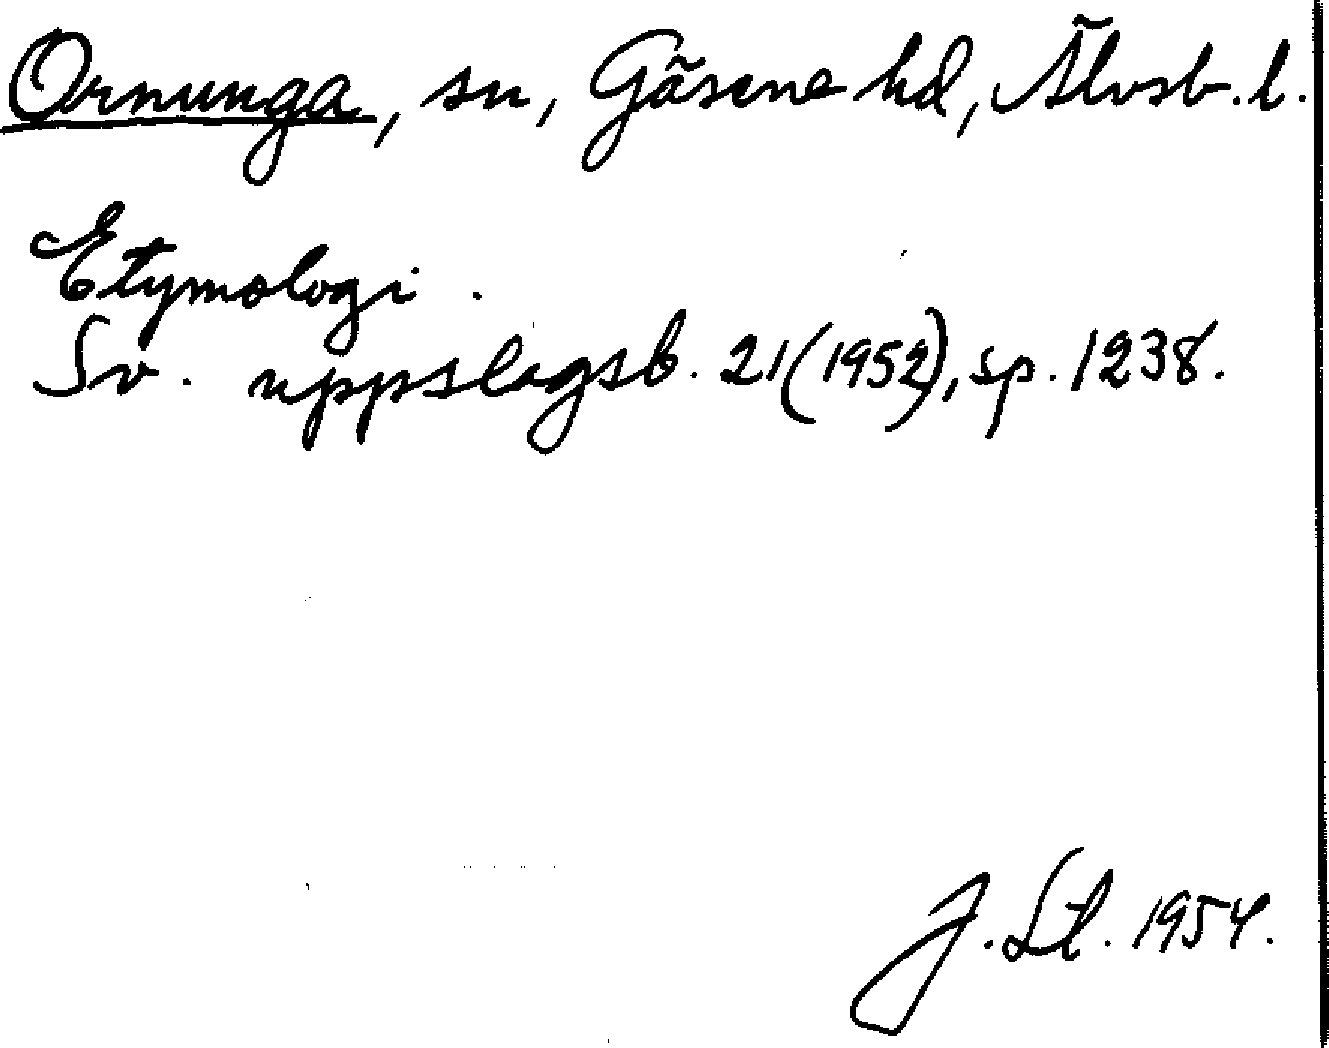 Ornunga, sn, Gäsene hd, Älvsb. l.
Etymologi.
Sv. uppslagsb. 21 (1952), sp. 1238.
J. St. 1954.